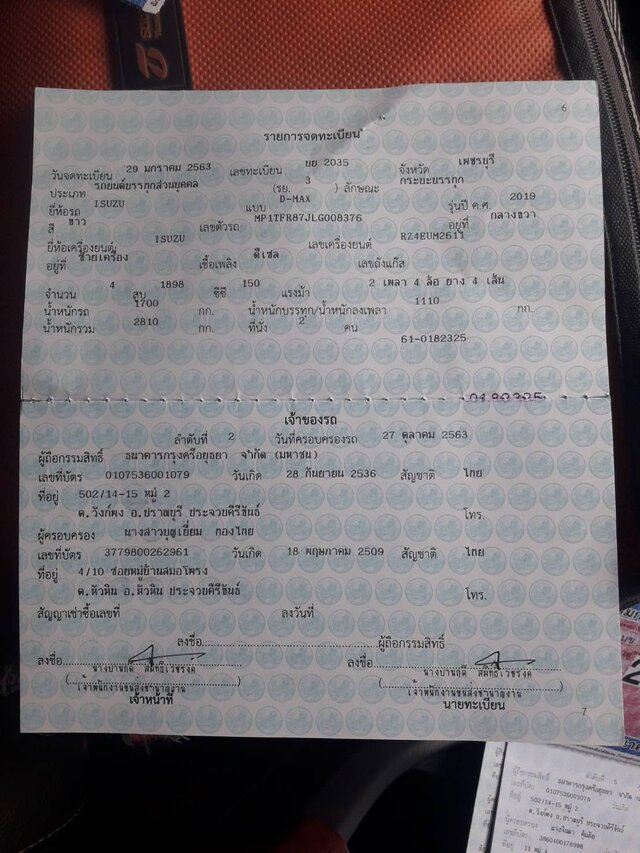 6
รายการจดทะเบียน
วันจดทะเบียน 29 มกราคม 2563 เลขทะเบียน ขย 2035 จังหวัด เพชรบุรี
ประเภท รถยนต์บรรทุกส่วนบุคคล (รย. 3 ) ลักษณะ กระบะบรรทุก
ยี่ห้อรถ ISUZU แบบ D-MAX รุ่นปี ค.ศ. 2019
สี ขาว เลขตัวรถ MP1TFR87JLG008376 อยู่ที่ กลางขวา
ยี่ห้อเครื่องยนต์ ISUZU เลขเครื่องยนต์ RZ4EUM2611
อยู่ที่ ซ้ายเครื่อง เชื้อเพลิง ดีเซล เลขถังแก๊ส
จำนวน 4 สูบ 1898 ซีซี 150 แรงม้า 2 เพลา 4 ล้อ ยาง 4 เส้น
น้ำหนักรถ 1700 กก. น้ำหนักบรรทุก/น้ำหนักลงเพลา 1110 กก.
น้ำหนักรวม 2810 กก. ที่นั่ง 2 คน
61-0182325
0182325
เจ้าของรถ
ลำดับที่ 2 วันที่ครอบครองรถ 27 ตุลาคม 2563
ผู้ถือกรรมสิทธิ์ ธนาคารกรุงศรีอยุธยา จำกัด (มหาชน)
เลขที่บัตร 0107536001079 วันเกิด 28 กันยายน 2536 สัญชาติ ไทย
ที่อยู่ 502/14-15 หมู่ 2
ต.วังก์พง อ.ปราณบุรี ประจวบคีรีขันธ์ โทร.
ผู้ครอบครอง นางสาวบุญเยี่ยม กองไทย
เลขที่บัตร 3779800262961 วันเกิด 18 พฤษภาคม 2509 สัญชาติ ไทย
ที่อยู่ 4/10 ซอยหมู่บ้านสมอโพรง
ต.หัวหิน อ.หัวหิน ประจวบคีรีขันธ์ โทร.
สัญญาเช่าซื้อเลขที่ ลงวันที่
ลงชื่อ ผู้ถือกรรมสิทธิ์
ลงชื่อ ลงชื่อ
เจ้าพนักงานขนส่งชำนาญงาน เจ้าพนักงานขนส่งชำนาญงาน
เจ้าหน้าที่ นายทะเบียน
7
ลำดับที่ 5
ผู้ถือกรรมสิทธิ์ ธนาคารกรุงศรีอยุธยา จำกัด
เลขที่บัตร 0107536001079 วันเกิด
ที่อยู่ 502/14-15 หมู่ 2
ต.วังก์พง อ.ปราณบุรี ประจวบคีรีขันธ์
ผู้ครอบครอง
เลขที่บัตร 3860400178998
ที่อยู่ 11 หมู่